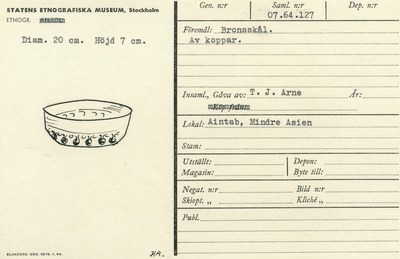 STATENS ETNOGRAFISKA MUSEUM, Stockholm
ETNOGR.
Diam. 20 cm. Höjd 7 cm.
ELANDERS, GBG. 5878. 1. 54.
Gen. n:r
Saml. n:r
Dep. n:r
07.64.127
Föremål: Bronsskål.
Av koppar.
Insaml., Gåva av: T. J. Arne
År:
Lokal: Aintab, Mindre Asien
Stam:
Utställt:
Depon:
Magasin:
Byte till:
Negat. n:r
Bild n:r
Skiopt. „
Kliché „
Publ.